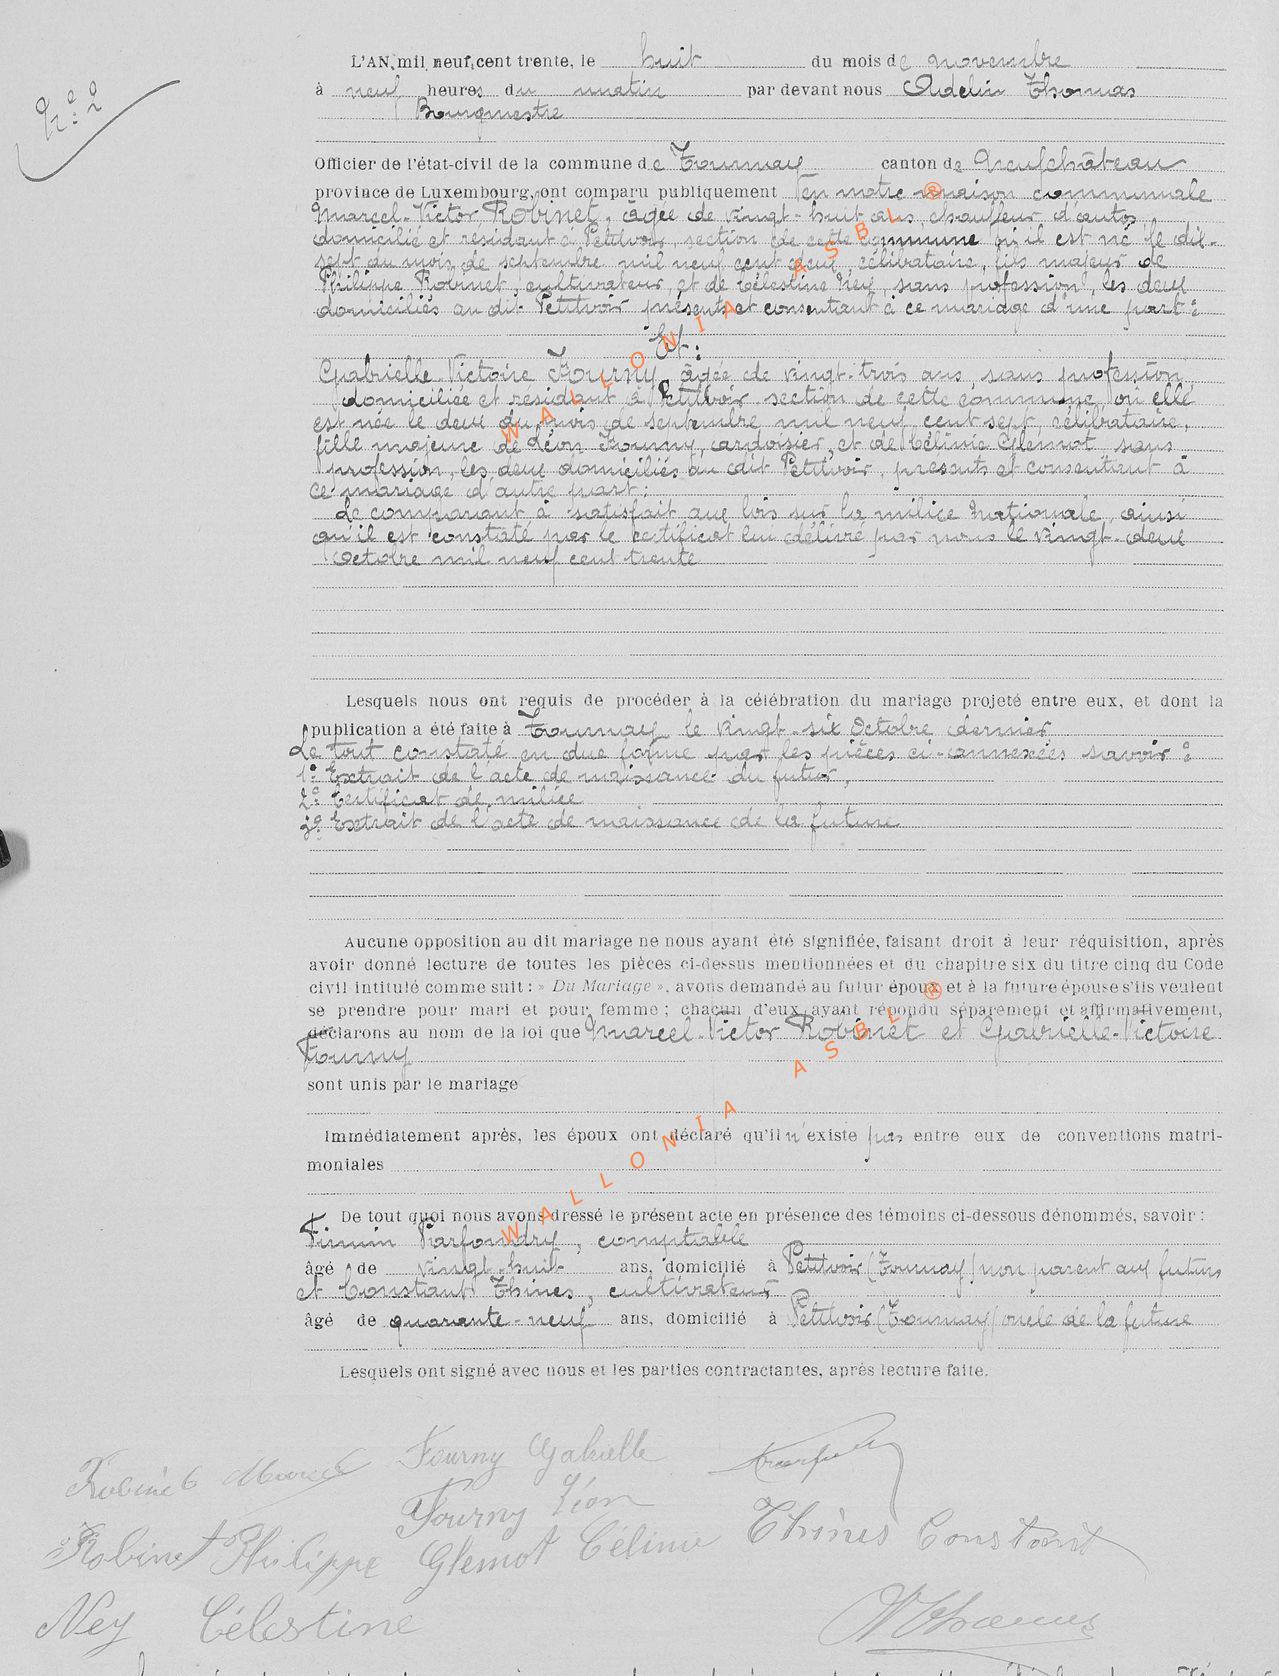 N° 2
L'AN mil neuf cent trente, le huit du mois de novembre
à neuf heures du matin par devant nous Adelin Thomas
Bourgmestre
Officier de l'état-civil de la commune de Tournay canton de Neufchâteau
province de Luxembourg, ont comparu publiquement en notre maison communale
Marcel-Victor Robinet, âgée de vingt-huit ans, chauffeur d'autos
domicilié et résidant à Petitvoir, section de cette commune où il est né le dix-
sept du mois de septembre mil neuf cent deux, célibataire, fils majeur de
Philippe Robinet, cultivateur, et de Célestine Ney, sans profession, les deux
domiciliés au dit Petitvoir présents et consentant à ce mariage d'une part :
Et :
Gabrielle-Victoire Fourny, âgée de vingt-trois ans, sans profession,
domiciliée et résidant à Petitvoir section de cette commune où elle
est née le deux du mois de septembre mil neuf cent sept, célibataire,
fille majeure de Léon Fourny, ardoisier, et de Célinie Glemot sans
profession, les deux domiciliés au dit Petitvoir, présents et consentant à
ce mariage d'autre part ;
Le comparant à satisfait aux lois sur la milice Nationale, ainsi
qu'il est constaté par le certificat lui délivré par nous le vingt-deux
octobre mil neuf cent trente
Lesquels nous ont requis de procéder à la célébration du mariage projeté entre eux, et dont la
publication a été faite à Tournay le vingt-six Octobre dernier
Le tout constaté en due forme par les pièces ci-annexées savoir :
1° Extrait de l'acte de naissance du futur,
2° Certificat de milice
3° Extrait de l'acte de naissance de la future
Aucune opposition au dit mariage ne nous ayant été signifiée, faisant droit à leur réquisition, après
avoir donné lecture de toutes les pièces ci-dessus mentionnées et du chapitre six du titre cinq du Code
civil intitulé comme suit : » Du Mariage », avons demandé au futur époux et à la future épouse s'ils veulent
se prendre pour mari et pour femme ; chacun d'eux ayant répondu séparement et affirmativement,
déclarons au nom de la loi que Marcel-Victor Robinet et Gabrielle-Victoire
Fourny
sont unis par le mariage
Immédiatement après, les époux ont déclaré qu'il n'existe pas entre eux de conventions matri-
moniales
De tout quoi nous avons dressé le présent acte en présence des témoins ci-dessous dénommés, savoir :
Firmin Parfondry, comptable
âgé de vingt-huit ans, domicilié à Petitvoir (Tournay) non parent aux futurs
et Constant Thines, cultivateur
âgé de quarante-neuf ans, domicilié à Petitvoir (Tournay) oncle de la future
Lesquels ont signé avec nous et les parties contractantes, après lecture faite.
Robinet Marcel Fourny Gabrielle
Fourny Léon
Robinet Philippe Glemot Célinie Thines Constant
Ney Célestine AThomas
WALLONIA ASBL ®
WALLONIA ASBL ®